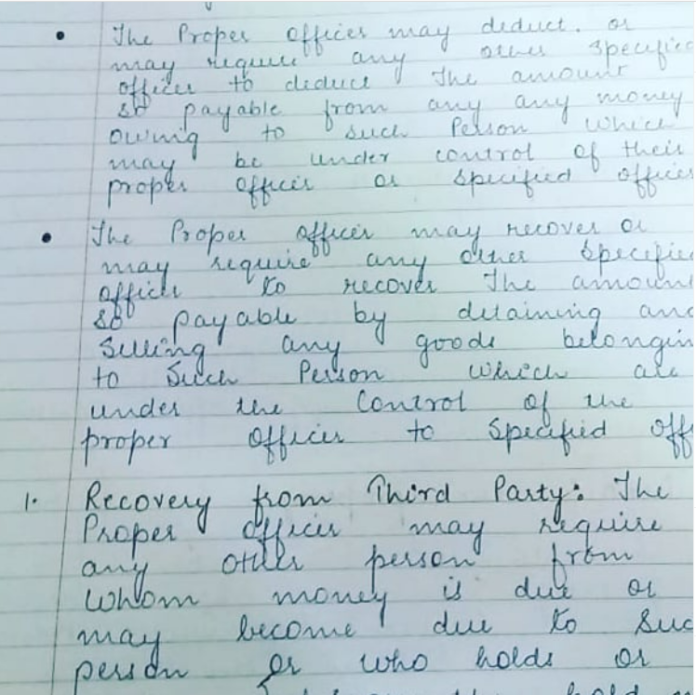 The Proper officer may deduct. or
may require any other specified
officer to deduct the amount
so payable from any any money
owing to such Person which
may be under control of their
proper officer or specified officer
The Proper officer may recover or
may require any other specified
officer to recover the amount
so payable by detaining and
selling any goods belongin
to such Person which are
under the control of the
proper officer to specified off
1. Recovery from Third Party: The
Proper officer may require
any other person from
whom money is due or
may become due to suc
person or who holds or